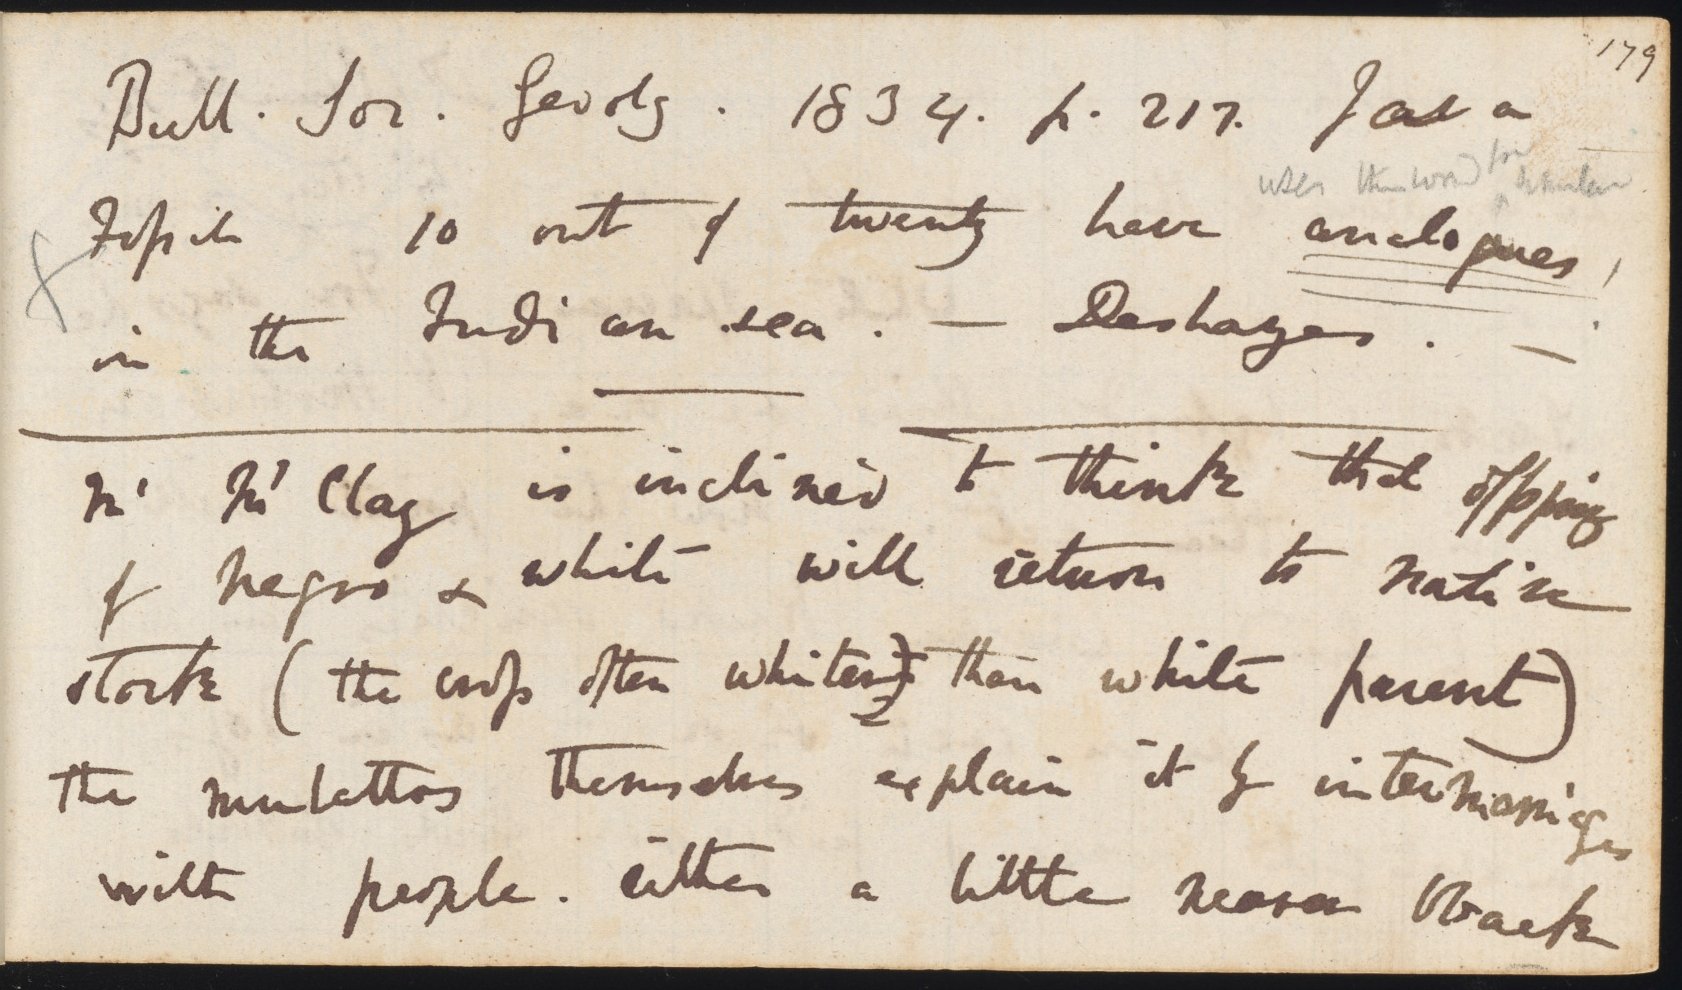 179
Bull. Soc. Geolog. 1834. p. 217. Java
uses this word for similar
Fossils 10 out of twenty have analogues!
in the Indian sea. — Deshayes. —
Mr Mr Clay is inclined to think that offspring
of negro & white will return to native
stock (the cross often whiter) than white parent)
the mulattos themselves explain it by intermarriages
with people. either a little nearer black